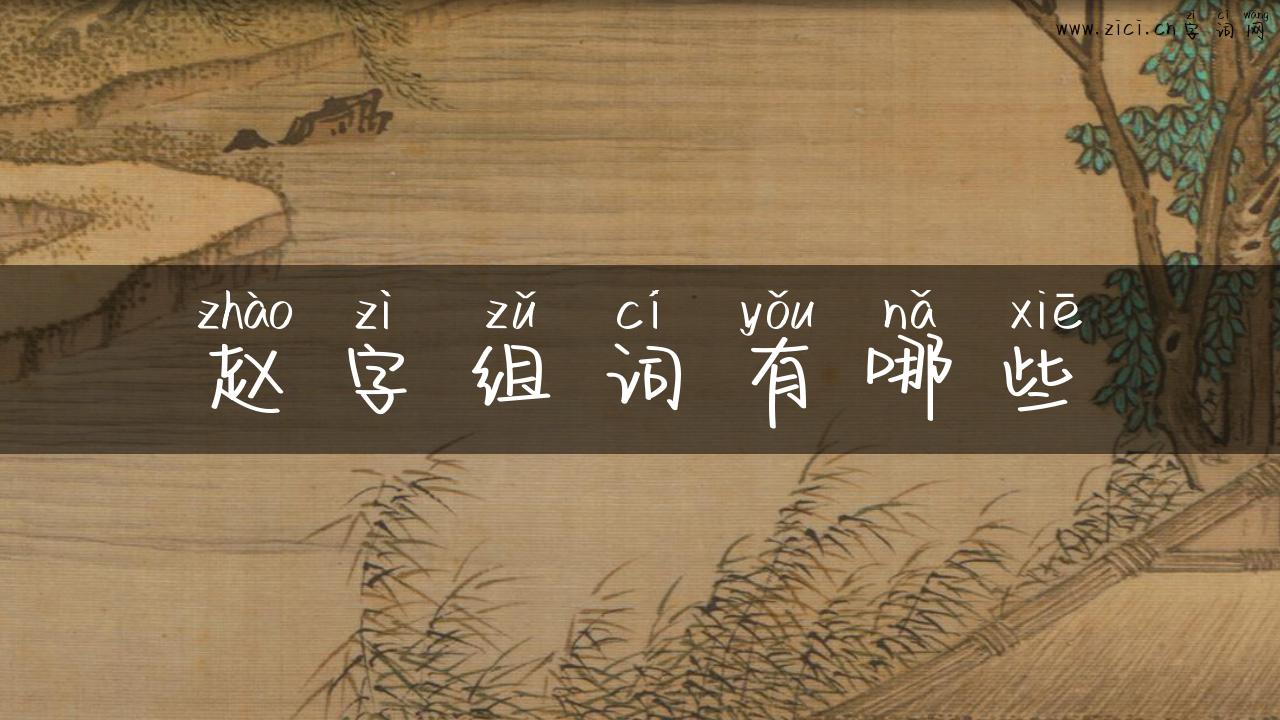 zì cí wǎng
www.zici.cn字词网
zhào zì zǔ cí yǒu nǎ xiē
赵字组词有哪些